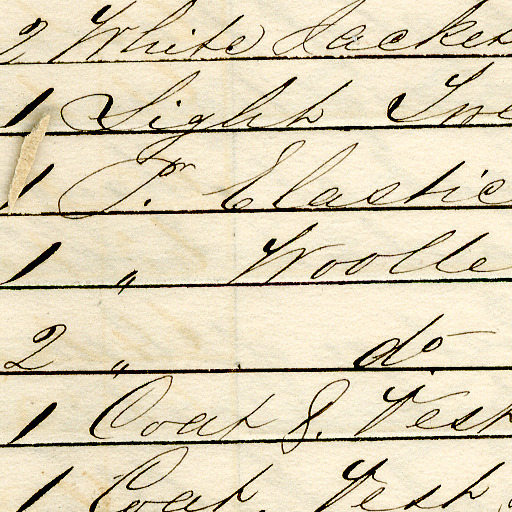 2 White Jacket
1 Light Twe
1 Pr. Elastic
1 " Woolle
2 " do
1 Coat & Vest
1 Coat. Vest